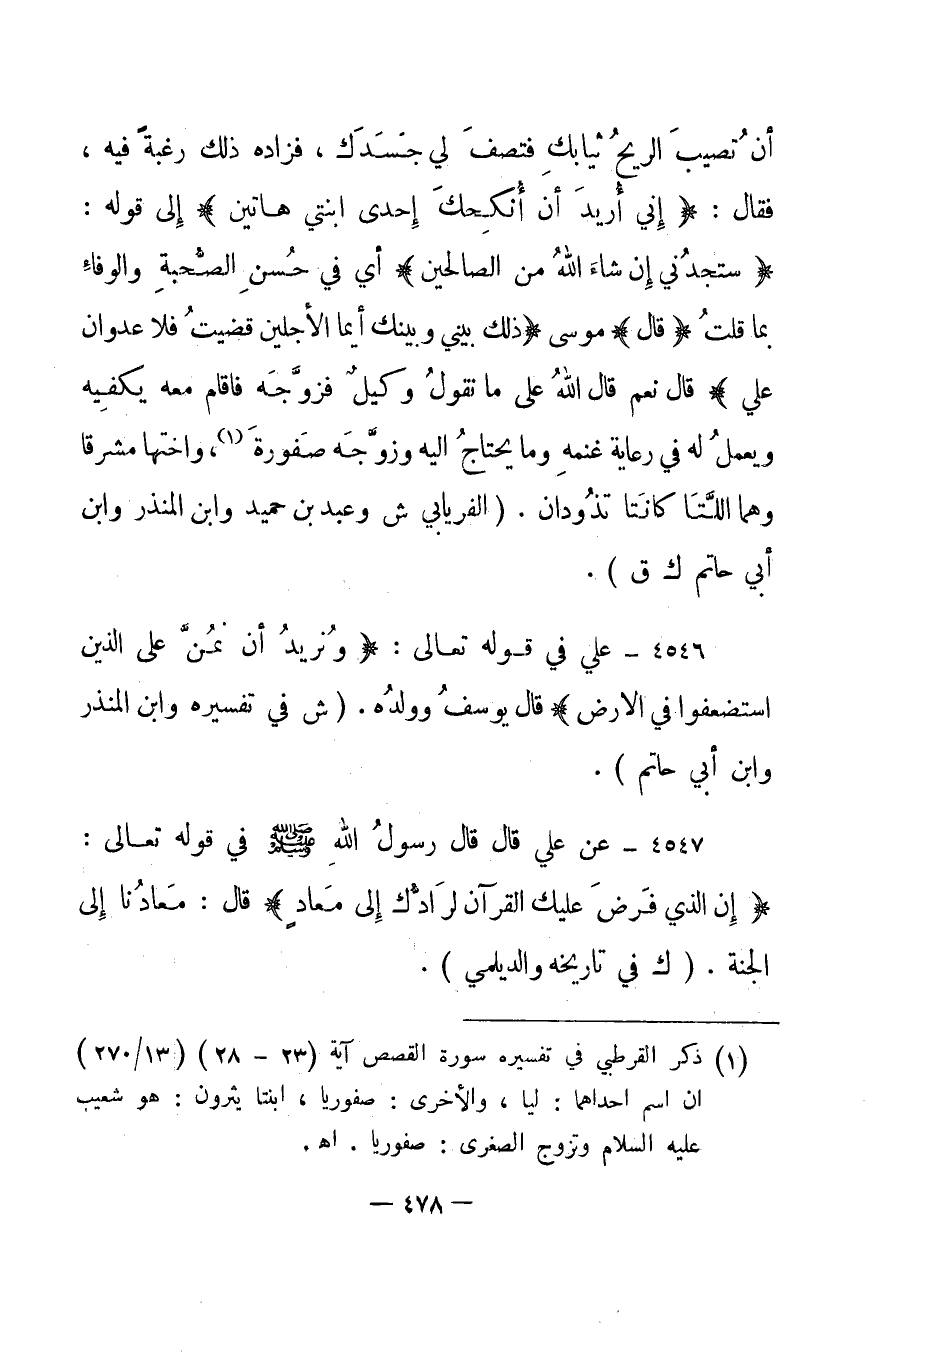 أن تُصيبَ الريحُ ثيابكِ فتصفَ لي جَسَدَكِ ، فزاده ذلك رغبةً فيه ،
فقال : ﴿ إني أُريدَ أن أُنكِحكَ إحدى ابنتي هاتين ﴾ إلى قوله :
﴿ ستجدُني إن شاءَ اللهُ من الصالحين ﴾ أي في حُسنِ الصُّحبةِ والوفاءِ
بما قلتُ ﴿ قال ﴾ موسى ﴿ ذلك بيني وبينك أيما الأجلين قضيتُ فلا عدوان
علي ﴾ قال نعم قال اللهُ على ما نقولُ وكيلٌ فزوَّجَه فاقام معه يكفيه
ويعملُ له في رعاية غنمهِ وما يحتاجُ اليه وزوَّجَه صَفورةَ (١) ، واختها مشرقا
وهما اللَّتَا كانَتا تذُودان . ( الفريابي ش وعبد بن حميد وابن المنذر وابن
أبي حاتم ك ق ) .
٤٥٤٦ ـ علي في قوله تعالى : ﴿ ونُريدُ أن نمُنَّ على الذين
استضعفوا في الارض ﴾ قال يوسفُ وولدُه . ( ش في تفسيره وابن المنذر
وابن أبي حاتم ) .
٤٥٤٧ ـ عن علي قال قال رسولُ اللهِ ﷺ في قوله تعالى :
﴿ إن الذي فَرضَ عليك القرآن لرَادُّك إلى مَعادٍ ﴾ قال : مَعادُنا إلى
الجنة . ( ك في تاريخه والديلمي ) .
(١) ذكر القرطبي في تفسيره سورة القصص آية (٢٣ ـ ٢٨) (٢٧٠/١٣)
ان اسم احداهما : ليا ، والأخرى : صفوريا ، ابنتا يثرون : هو شعيب
عليه السلام وتزوج الصغرى : صفوريا . اهـ .
ـ ٤٧٨ ـ